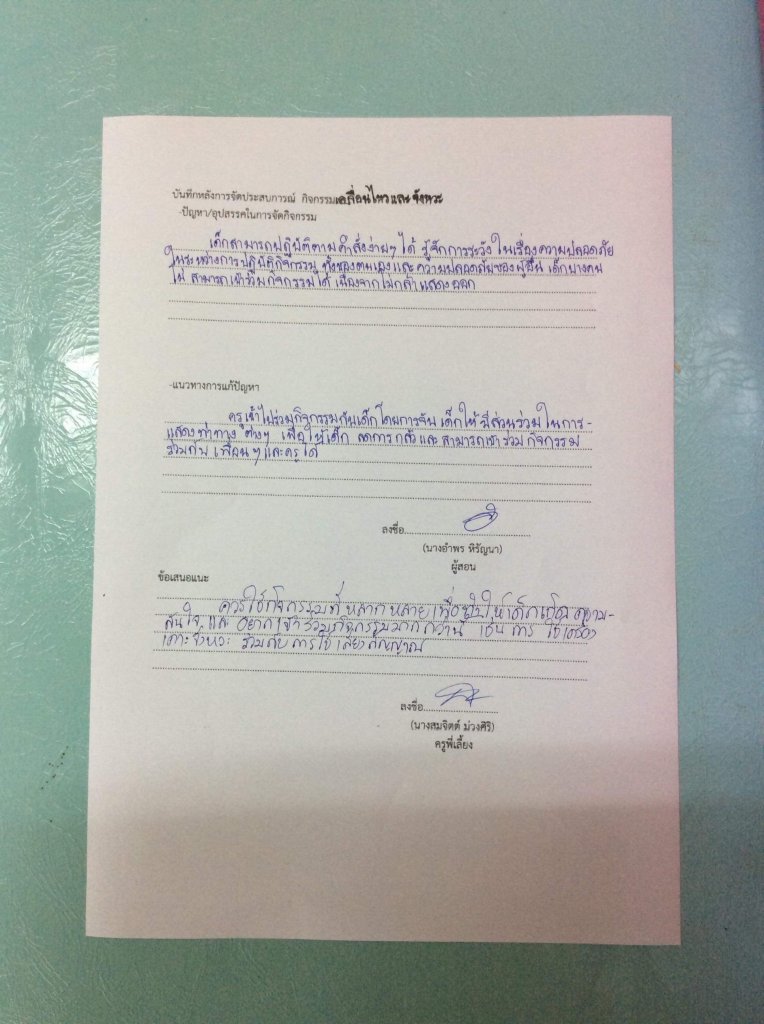 บันทึกหลังการจัดประสบการณ์ กิจกรรมเคลื่อนไหวและจังหวะ
-ปัญหา/อุปสรรคในการจัดกิจกรรม
เด็กสามารถปฏิบัติตามคำสั่งง่ายๆ ได้ รู้จักการระวัง ในเรื่องความปลอดภัย
ในระหว่างการปฏิบัติกิจกรรม ทั้งของตนเองและความปลอดภัยของผู้อื่น เด็กบางคน
ไม่สามารถเข้าร่วมกิจกรรมได้ เนื่องจากไม่กล้าแสดงออก
-แนวทางการแก้ปัญหา
ครูเข้าไปร่วมกิจกรรมกับเด็กโดยการจับเด็กให้มีส่วนร่วมในการ-
แสดงท่าทาง ต่างๆ เพื่อให้เด็ก ลดการกลัวและสามารถเข้าร่วมกิจกรรม
ร่วมกับเพื่อนๆและครูได้
ลงชื่อ
(นางอำพร หิรัญนา)
ผู้สอน
ข้อเสนอแนะ
ควรใช้กิจกรรมที่หลากหลายเพื่อ ให้เด็กเกิดความ-
สนใจ และ อยากเข้าร่วมกิจกรรมมากกว่านี้ เช่น การ ใช้เครื่อง
เคาะจังหวะ ร่วมกับการใช้เสียงสัญญาณ
ลงชื่อ
(นางสมจิตต์ ม่วงศิริ)
ครูพี่เลี้ยง